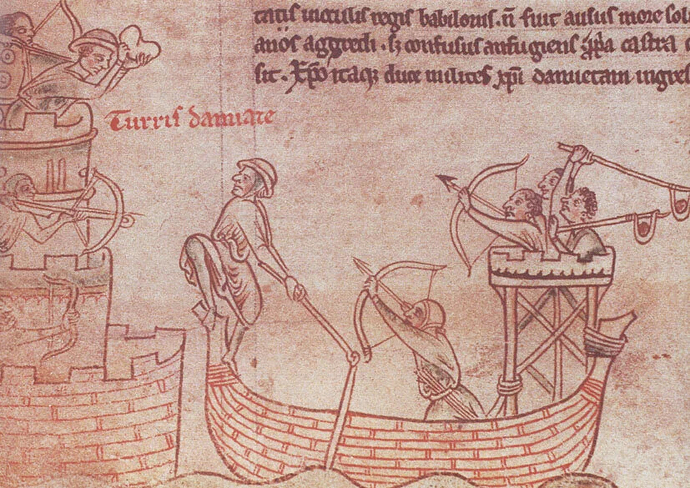 tatis in oculis regis babilonis. n̄ fuit ausus more sol
anos aggredi. sʒ confusus aufugiens castra
sit. Xp̄o itaqʒ duce milites xp̄i damietam ingres
Turris damiate